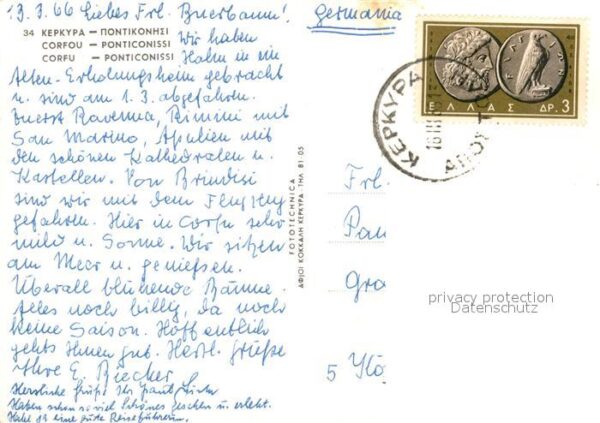 13.3.66 Liebes Frl. Buerbaum!
34 ΚΕΡΚΥΡΑ — ΠΟΝΤΙΚΟΝΗΣΙ
CORFOU — PONTICONISSI
CORFU — PONTICONISSI
Wir haben
in ein
Alten-Erholungsheim gebracht
u. sind am 1.3. abgefahren.
Zuerst Ravenna, Rimini mit
San Marino, Apulien mit
den schönen Kathedralen u.
Kastellen. Von Brindisi
sind wir mit dem
gefahren. Hier in Corfu sehr
mild u. Sonne. Wir sitzen
am Meer u. genießen.
Überall blühende Bäume.
Alles noch billig, da noch
keine Saison. Hoffentlich
gehts Ihnen gut. Herzl. Grüße
Ihre E. Riecker
Herzliche Grüße Ihr
Haben schon so viel Schönes gesehen u. erlebt.
Habe ja eine gute Reiseführerin.
FOTOTECHNICA
ΑΦΟΙ ΚΟΚΚΑΛΗ ΚΕΡΚΥΡΑ · ΤΗΛ 81-05
Germania
ΕΛΛΑΣ ΔΡ. 3
ΚΕΡΚΥΡΑ
Frl.
Pau
Gra
5 Kö
privacy protection
Datenschutz